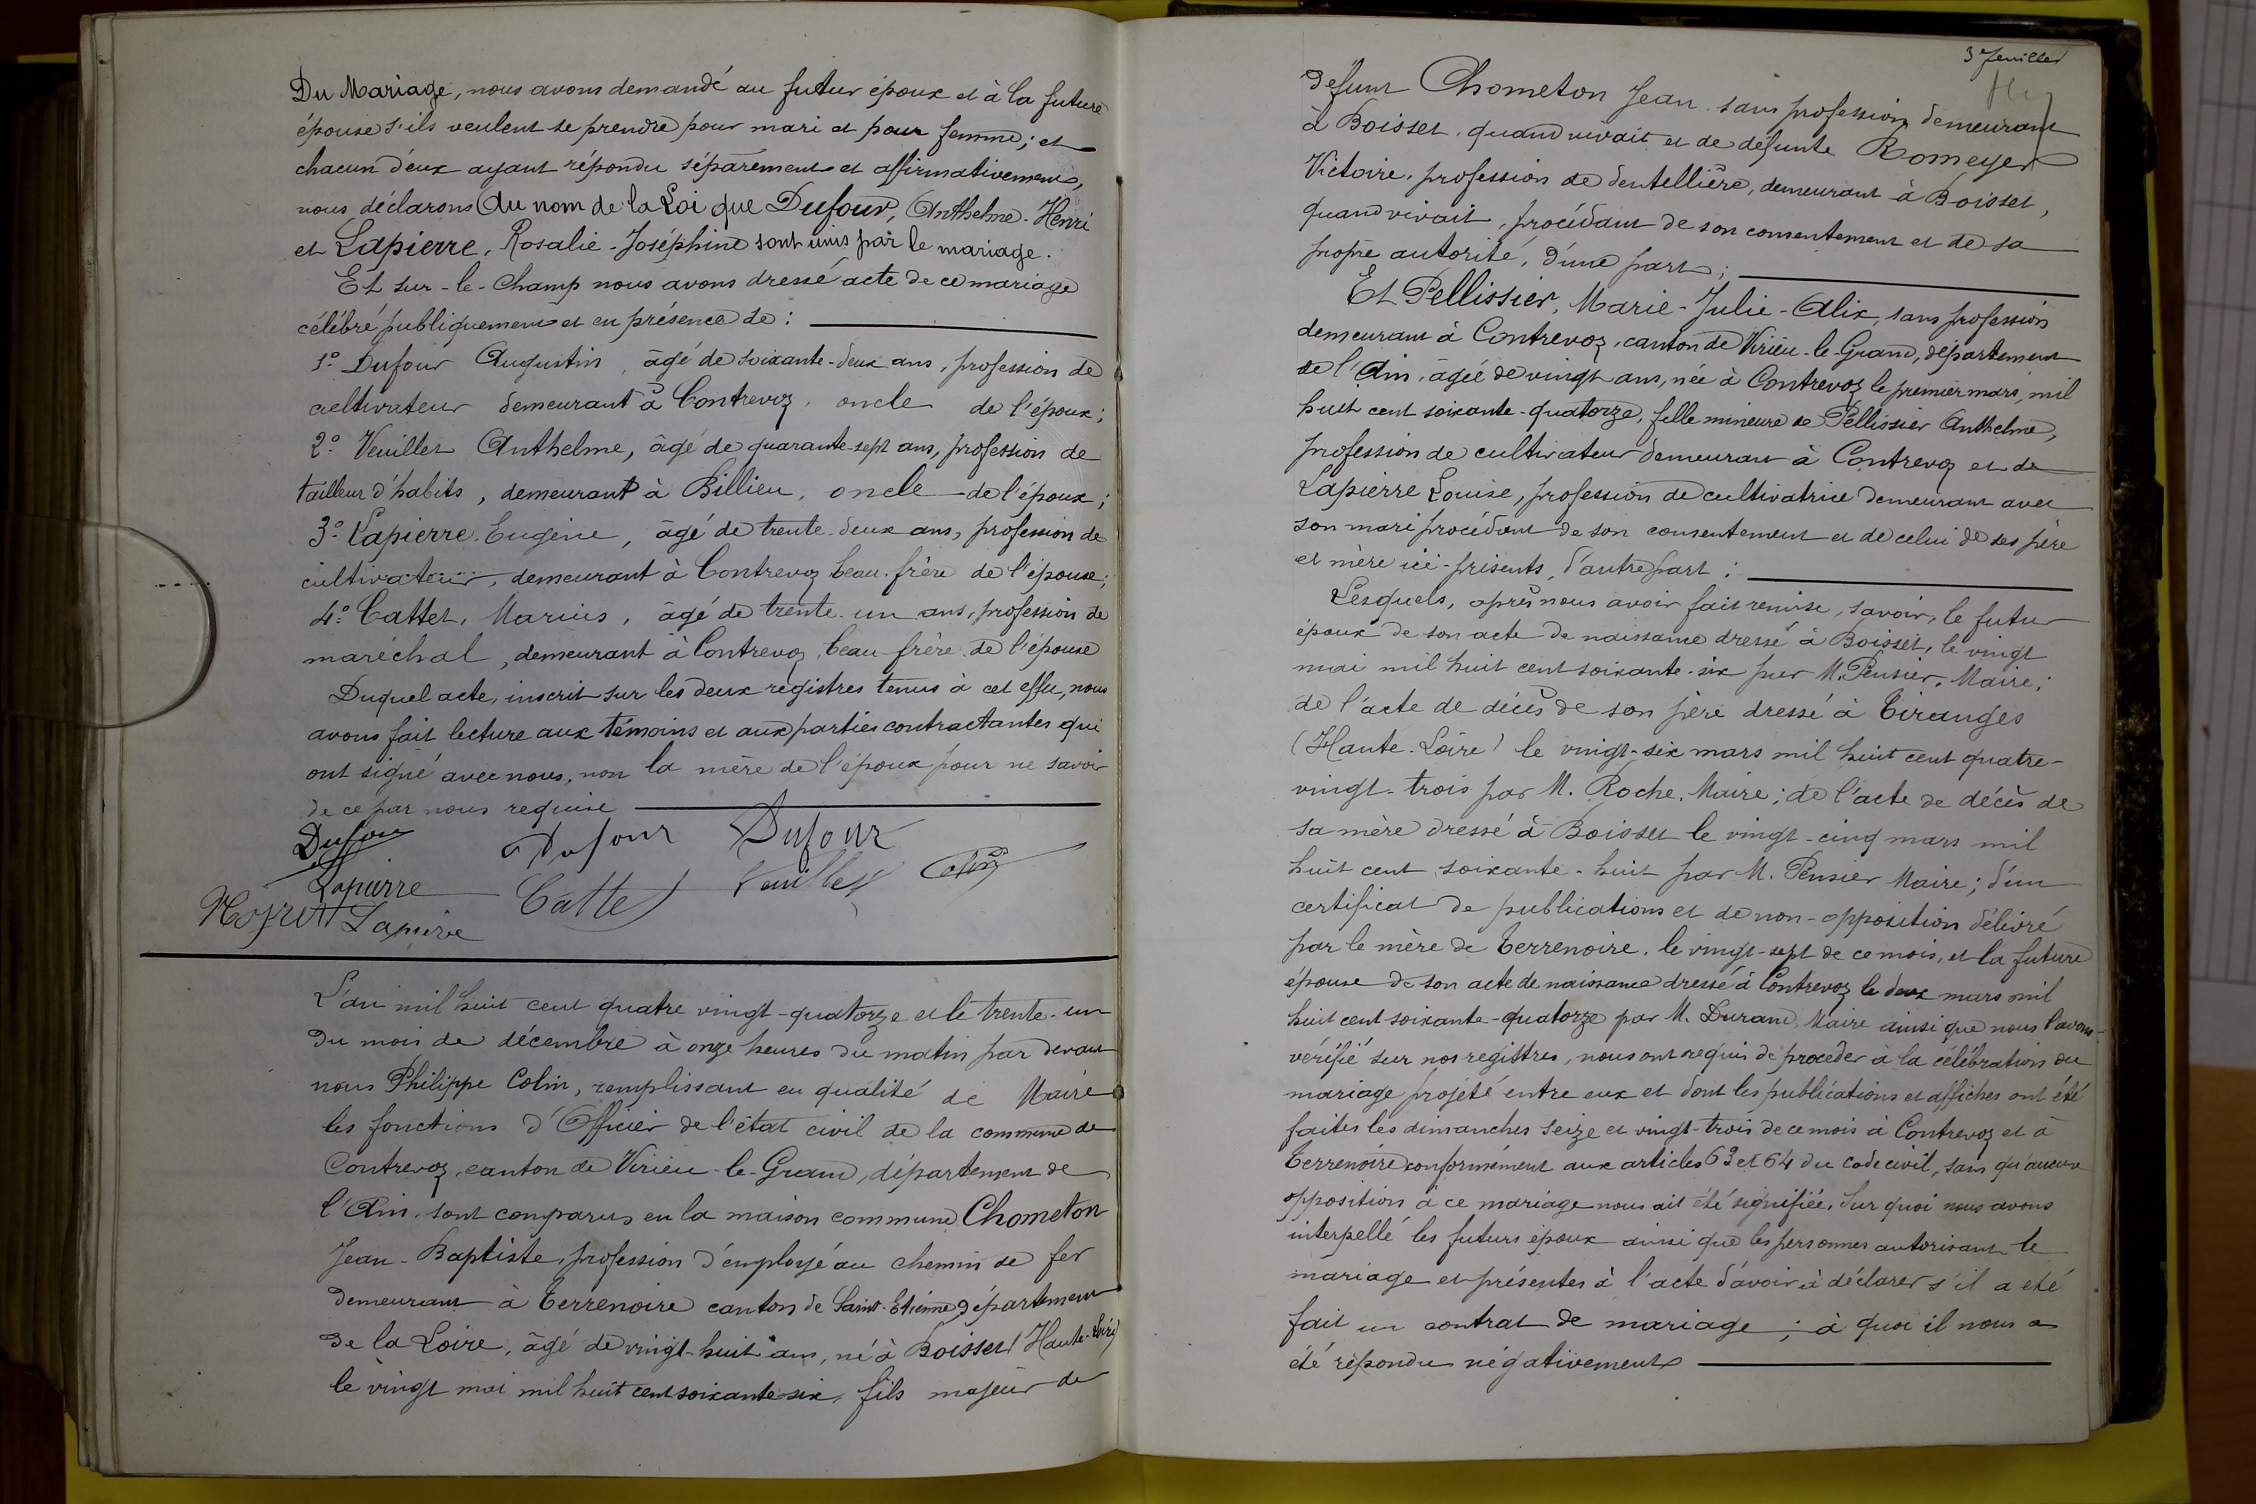 Du Mariage, nous avons demandé au futur époux et à la future
épouse s'ils veulent se prendre pour mari et pour femme; et
chacun d'eux ayant répondu séparément et affirmativement,
nous déclarons Au nom de la Loi que Dufour, Anthelme-Henri
et Lapierre, Rosalie-Joséphine sont unis par le mariage.
Et sur-le-champ nous avons dressé acte de ce mariage
célébré publiquement et en présence de :
1° Dufour Augustin, âgé de soixante-deux ans, profession de
cultivateur demeurant à Contrevoz, oncle de l'époux;
2° Veuillet Anthelme, âgé de quarante-sept ans, profession de
tailleur d'habits, demeurant à Billieu, oncle de l'époux;
3° Lapierre Eugène, âgé de trente-deux ans, profession de
cultivateur, demeurant à Contrevoz beau-frère de l'épouse;
4° Cattet, Marius, âgé de trente-un ans, profession de
maréchal, demeurant à Contrevoz, beau-frère de l'épouse
Duquel acte, inscrit sur les deux registres tenus à cet effet, nous
avons fait lecture aux témoins et aux parties contractantes qui
ont signé avec nous, non la mère de l'époux pour ne savoir
de ce par nous requise
Dufour Dufour Dufour
Lapierre Cattet Veuillet Colin
Lapierre
L'an mil huit cent quatre vingt-quatorze et le trente-un
du mois de décembre à onze heures du matin par devant
nous Philippe Colin, remplissant en qualité de Maire
les fonctions d'Officier de l'état civil de la commune de
Contrevoz, canton de Virieu-le-Grand, département de
l'Ain, sont comparus en la maison commune Chometon
Jean-Baptiste, profession d'employé au chemin de fer
demeurant à Terrenoire canton de Saint-Etienne département
de la Loire, âgé de vingt-huit ans, né à Boisset (Haute-Loire)
le vingt mai mil huit cent soixante-six, fils majeur de
3e feuillet
défunt Chometon Jean sans profession demeurant
à Boisset, quand vivait et de défunte Romeyer
Victoire, profession de dentellière, demeurant à Boisset,
quand vivait, procédant de son consentement et de sa
propre autorité, d'une part;
Et Pellissier, Marie-Julie-Alix, sans profession
demeurant à Contrevoz, canton de Virieu-le-Grand, département
de l'Ain, âgée de vingt ans, née à Contrevoz le premier mars, mil
huit cent soixante-quatorze, fille mineure de Pellissier Anthelme,
profession de cultivateur demeurant à Contrevoz et de
Lapierre Louise, profession de cultivatrice demeurant avec
son mari procédant de son consentement et de celui de ses père
et mère ici-présents, d'autre part :
Lesquels, après nous avoir fait remise, savoir, le futur
époux de son acte de naissance dressé à Boisset, le vingt
mai mil huit cent soixante-six par M. Pensier, Maire;
de l'acte de décès de son père dressé à Tiranges
(Haute-Loire) le vingt-six mars mil huit cent quatre-
vingt-trois par M. Roche, Maire; de l'acte de décès de
sa mère dressé à Boisset le vingt-cinq mars mil
huit cent soixante-huit par M. Pensier Maire; d'un
certificat de publications et de non-opposition délivré
par le mère de Terrenoire, le vingt-sept de ce mois, et la future
épouse de son acte de naissance dressé à Contrevoz le deux mars mil
huit cent soixante-quatorze par M. Durand, Maire ainsi que nous l'avons
vérifié sur nos registres, nous ont requis de procéder à la célébration du
mariage projeté entre eux et dont les publications et affiches ont été
faites les dimanches seize et vingt-trois de ce mois à Contrevoz et à
Terrenoire conformément aux articles 63 et 64 du code civil, sans qu'aucune
opposition à ce mariage nous ait été signifiée. Sur quoi nous avons
interpellé les futurs époux ainsi que les personnes autorisant le
mariage et présentes à l'acte d'avoir à déclarer s'il a été
fait un contrat de mariage; à quoi il nous a
été répondu négativement